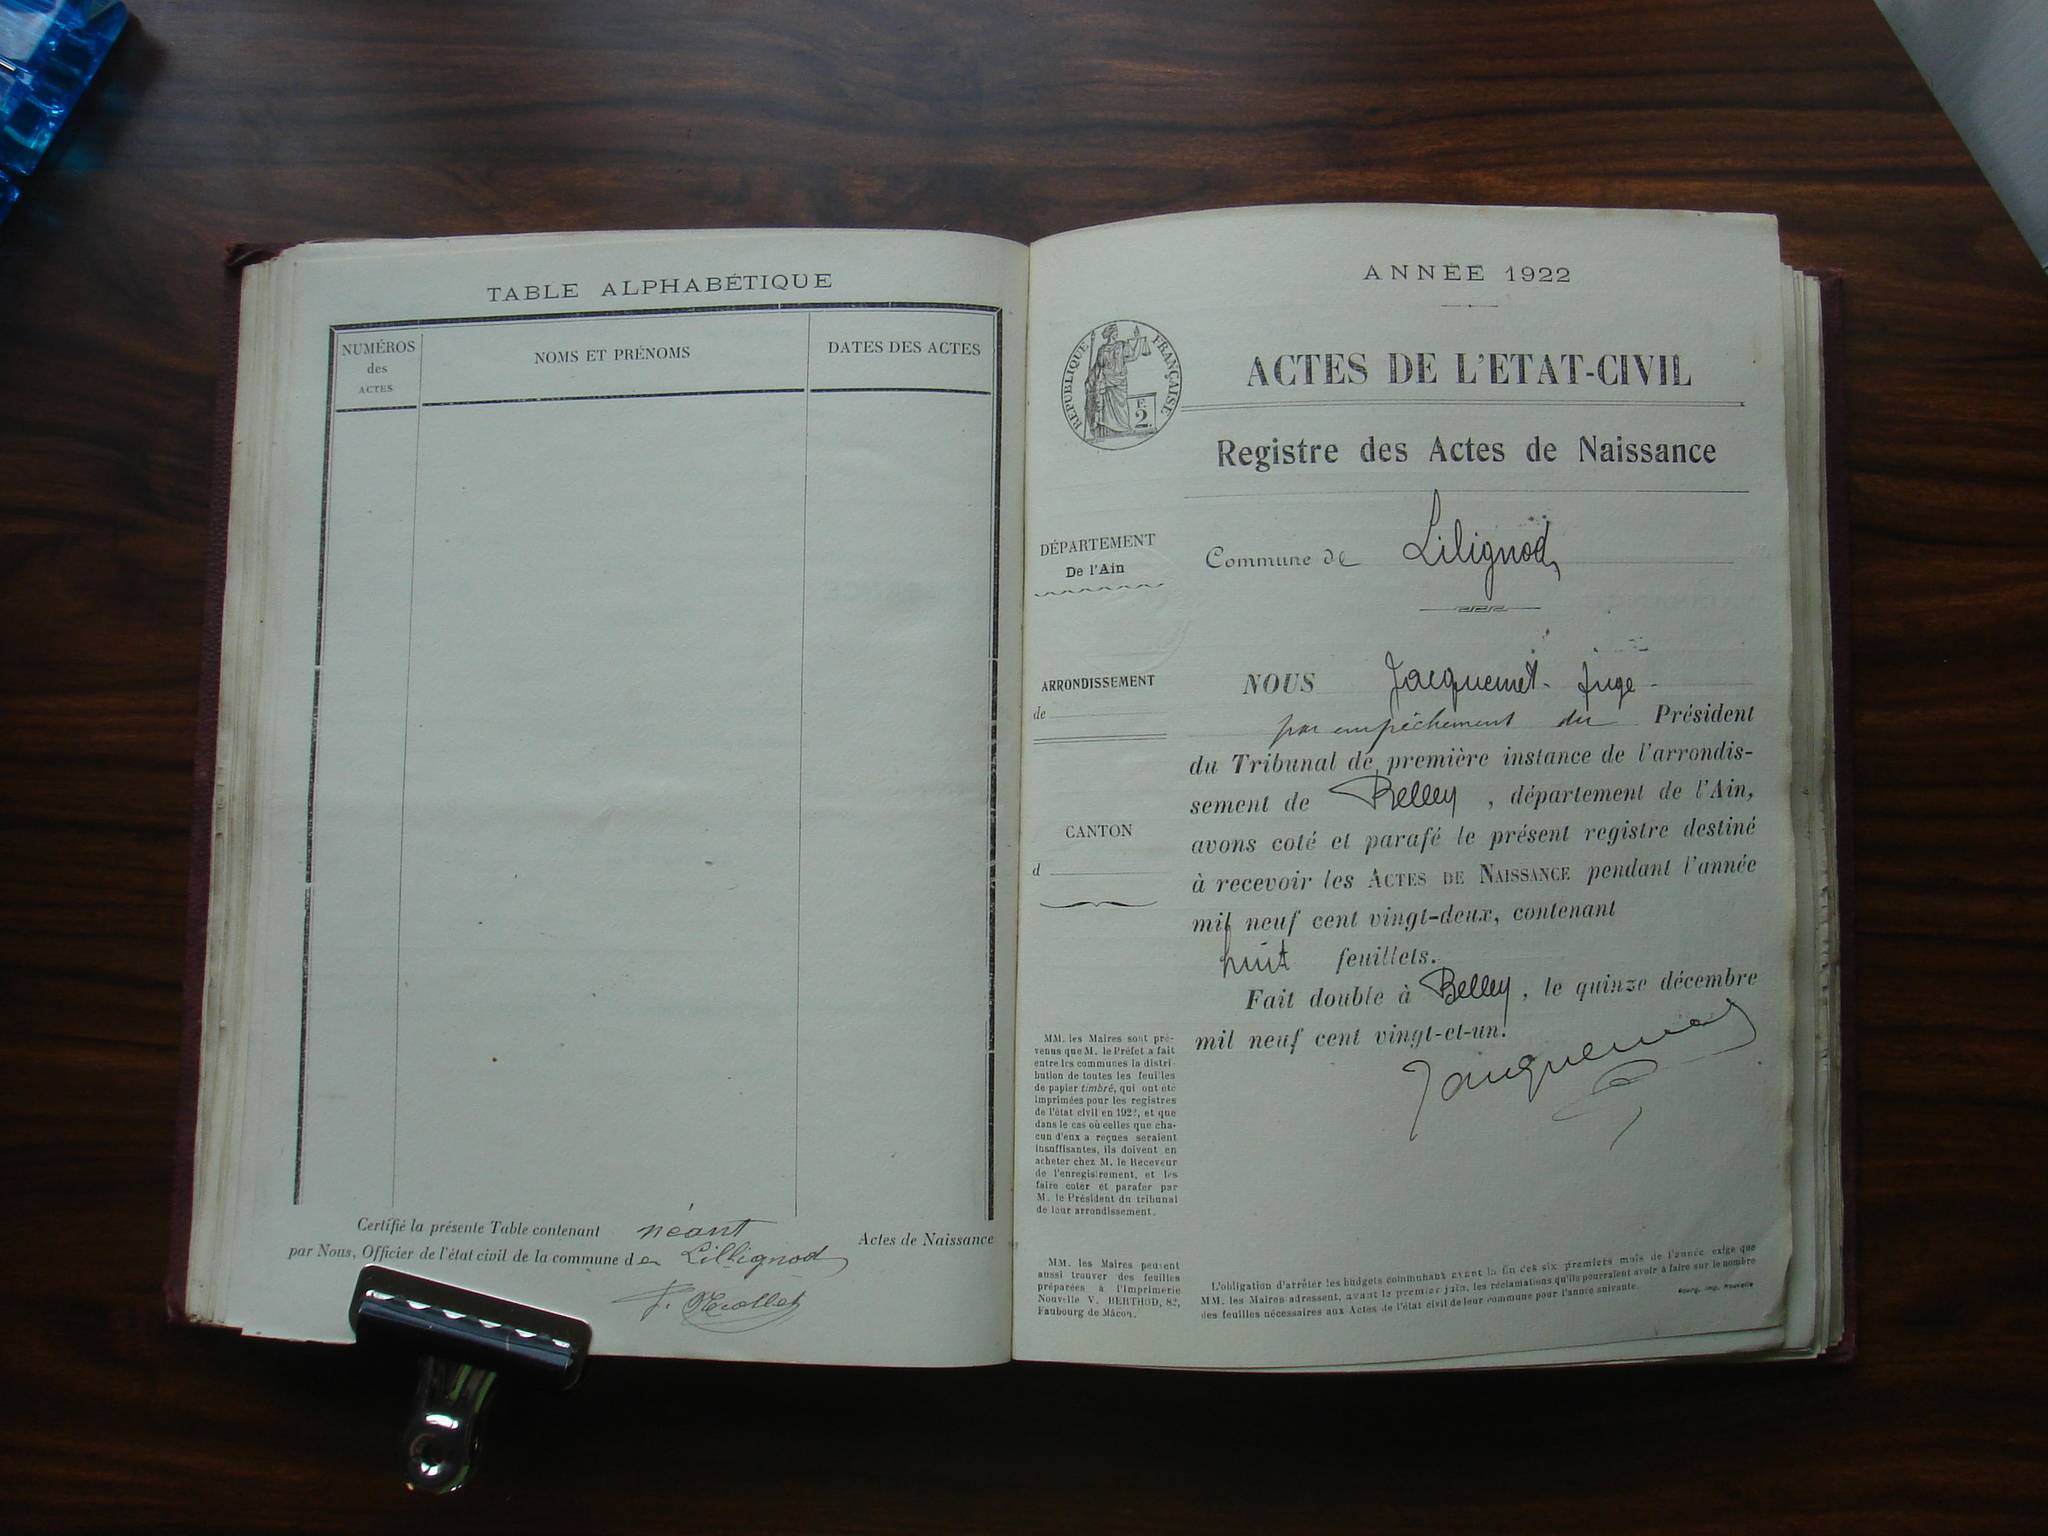 TABLE ALPHABÉTIQUE
NUMÉROS
des
ACTES
NOMS ET PRÉNOMS
DATES DES ACTES
Certifié la présente Table contenant néant Actes de Naissance
par Nous, Officier de l'état civil de la commune de Lillignod
ANNÉE 1922
RÉPUBLIQUE FRANÇAISE
F.
2.
ACTES DE L'ETAT-CIVIL
Registre des Actes de Naissance
DÉPARTEMENT
De l'Ain
Commune de Lilignod
ARRONDISSEMENT
de
CANTON
d
NOUS Jacquemet juge
par empêchement du Président
du Tribunal de première instance de l'arrondis-
sement de Belley, département de l'Ain,
avons coté et parafé le présent registre destiné
à recevoir les ACTES DE NAISSANCE pendant l'année
mil neuf cent vingt-deux, contenant
huit feuillets.
Fait double à Belley, le quinze décembre
mil neuf cent vingt-et-un.
Jacquemet
MM. les Maires sont pré-
venus que M. le Préfet a fait
entre les communes la distri-
bution de toutes les feuilles
de papier timbré, qui ont été
imprimées pour les registres
de l'état civil en 1922, et que
dans le cas où celles que cha-
cun d'eux a reçues seraient
insuffisantes, ils doivent en
acheter chez M. le Receveur
de l'enregistrement, et les
faire coter et parafer par
M. le Président du tribunal
de leur arrondissement.
MM. les Maires peuvent
aussi trouver des feuilles
préparées à l'Imprimerie
Nouvelle V. BERTHOD, 82,
Faubourg de Mâcon.
L'obligation d'arrêter les budgets communaux avant la fin des six premiers mois de l'année exige que
MM. les Maires adressent, avant le premier juin, les réclamations qu'ils pourraient avoir à faire sur le nombre
des feuilles nécessaires aux Actes de l'état civil de leur commune pour l'année suivante.
Bourg, Imp. Nouvelle